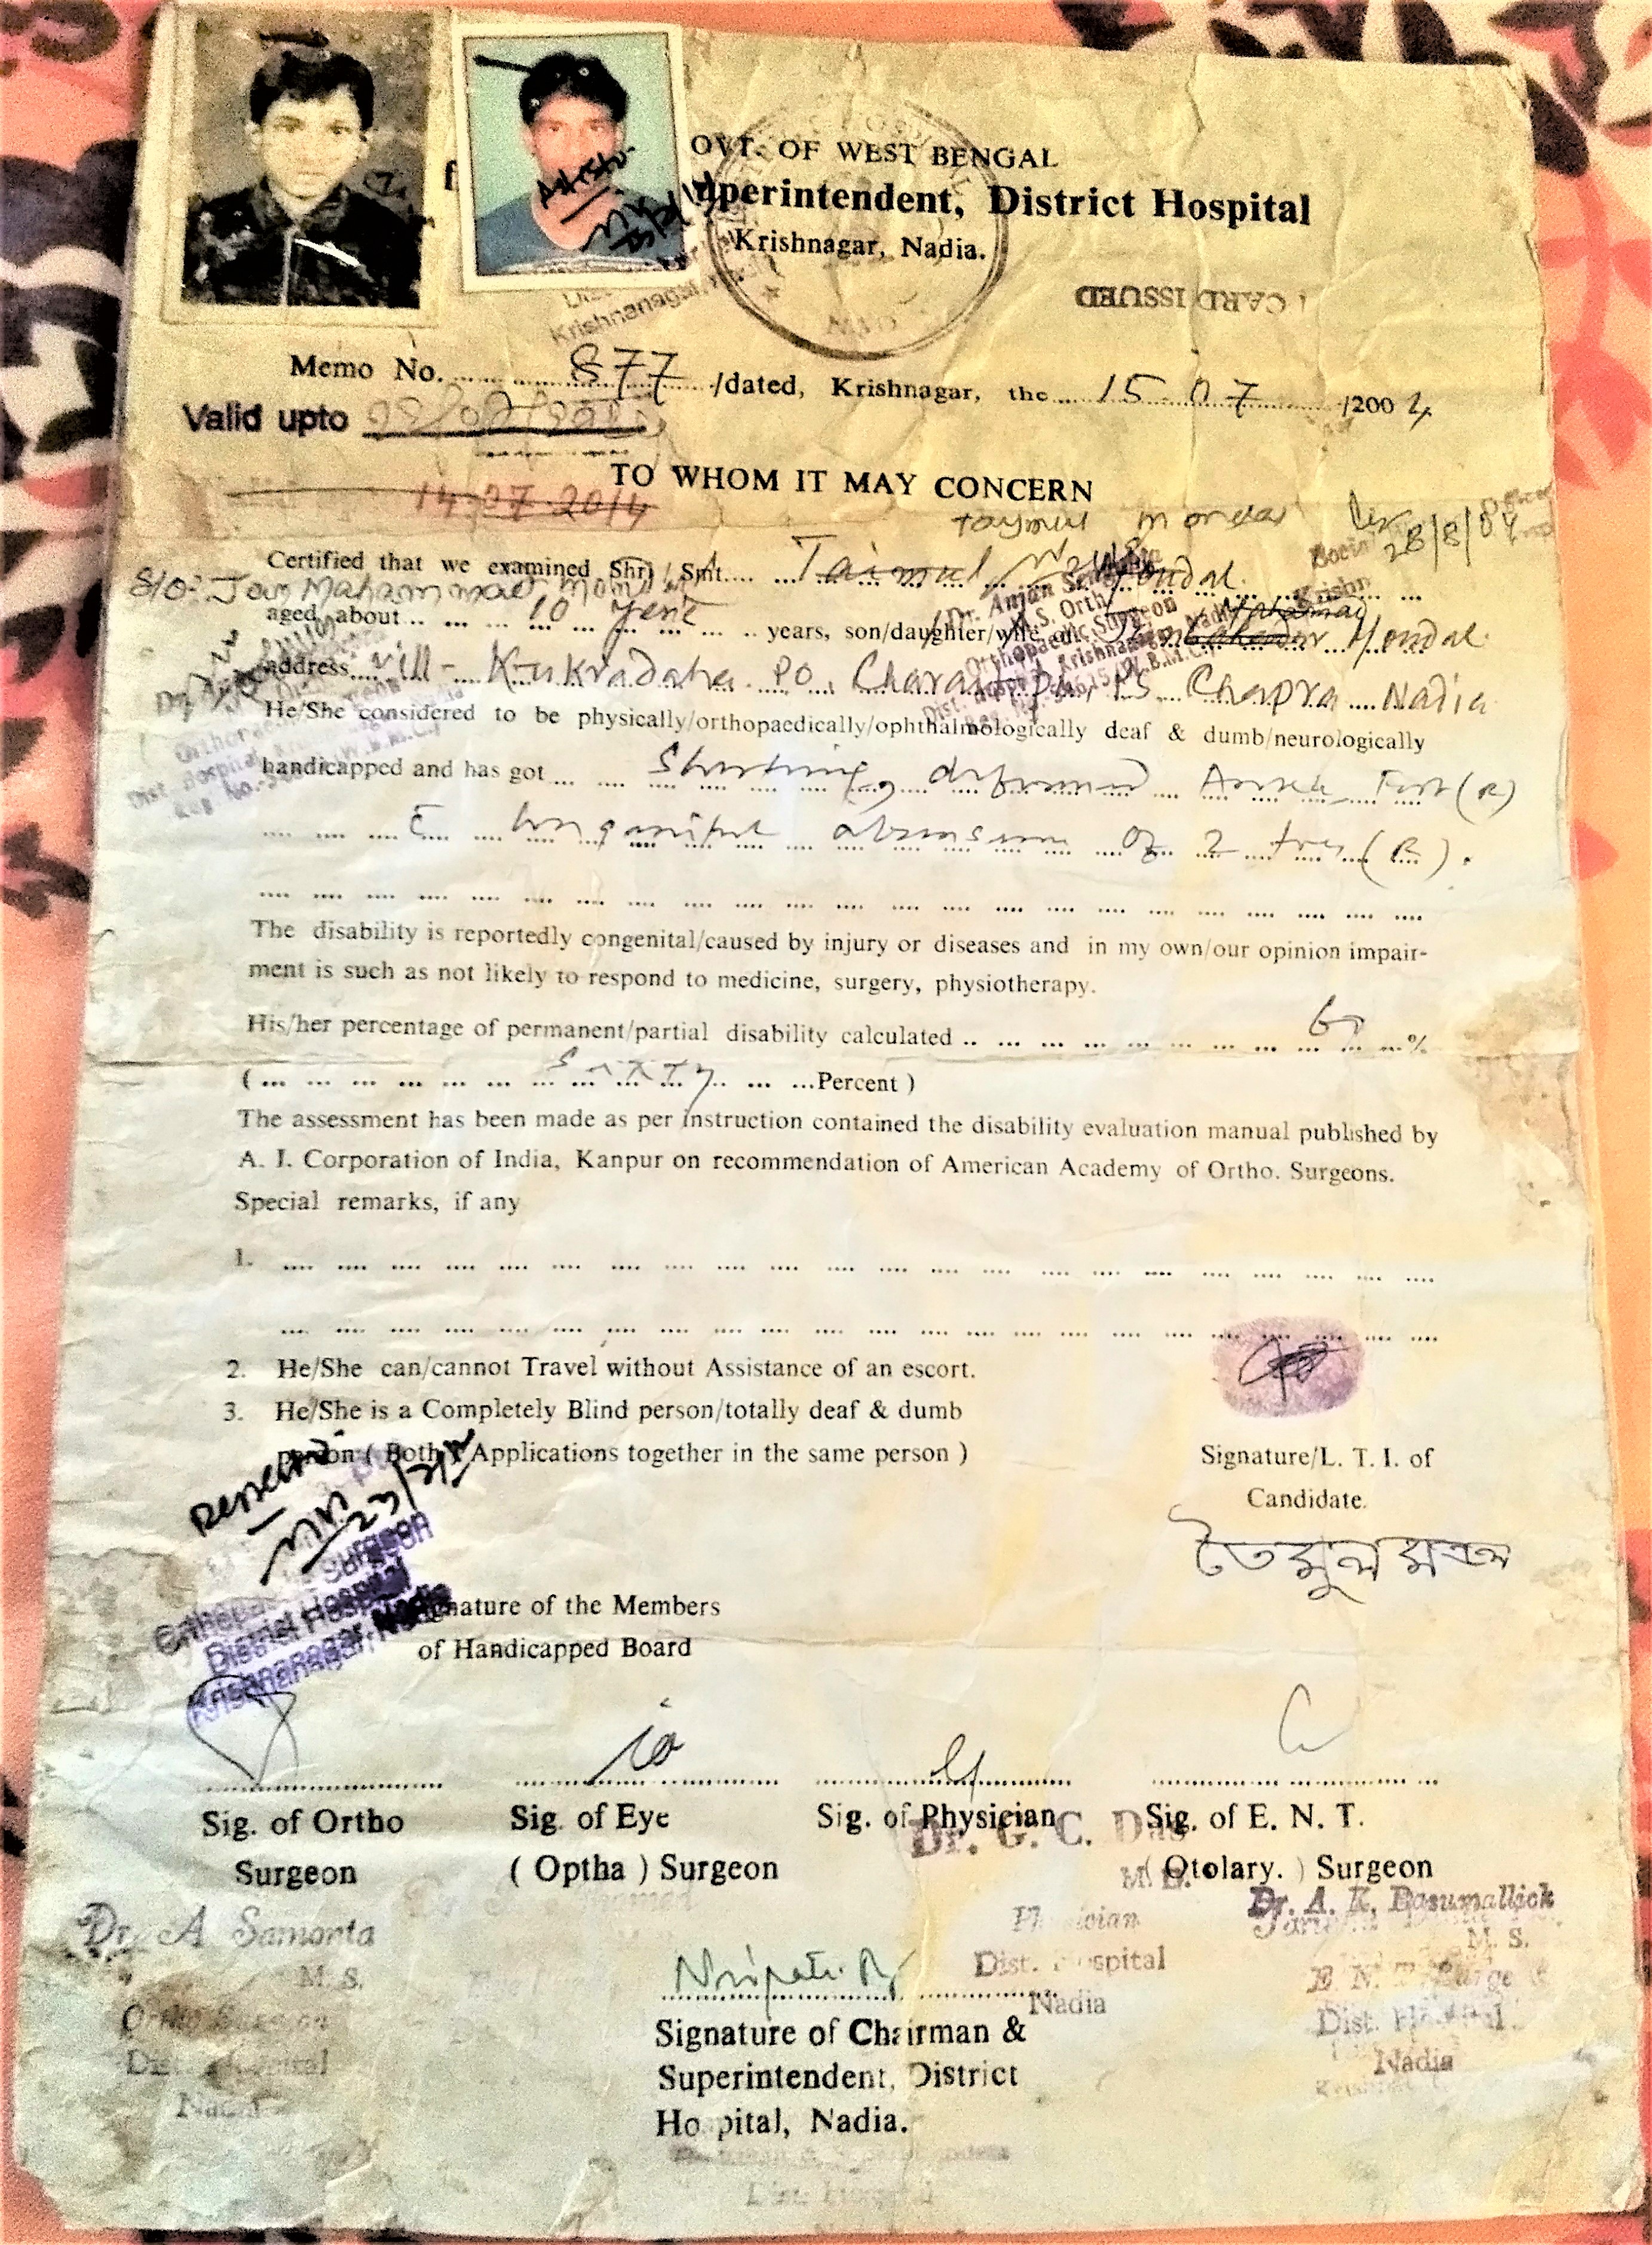 OVT. OF WEST BENGAL
uperintendent, District Hospital
Krishnagar, Nadia.
Krishnanagar,
CARD ISSUED
Memo No. 877 /dated, Krishnagar, the 15.07 /2004
Valid upto
TO WHOM IT MAY CONCERN
14.07.2014
Taymul Mondal
28/8/04
Certified that we examined Shri / Smt. Taimul Mondal.
S/O- Jan Mahammad Mondal
aged about 10 years, son/daughter/wife of Mondal.
address Vill- Kukradaha PO. PS Chapra Nadia
He/She considered to be physically/orthopaedically/ophthalmologically deaf & dumb/neurologically
handicapped and has got Shorting, deformed Ankle, Foot (R)
c̄ congenital absence of 2 toes (R).
The disability is reportedly congenital/caused by injury or diseases and in my own/our opinion impair-
ment is such as not likely to respond to medicine, surgery, physiotherapy.
His/her percentage of permanent/partial disability calculated 60 %
( Sixty Percent )
The assessment has been made as per instruction contained the disability evaluation manual published by
A. I. Corporation of India, Kanpur on recommendation of American Academy of Ortho. Surgeons.
Special remarks, if any
1.
2. He/She can/cannot Travel without Assistance of an escort.
3. He/She is a Completely Blind person/totally deaf & dumb
person ( Both Applications together in the same person )
Signature/L. T. I. of
Candidate.
তৈমুল মন্ডল
Renewed
Surgeon
District Hospital
Krishnanagar, Nadia
Signature of the Members
of Handicapped Board
Sig. of Ortho Sig. of Eye Sig. of Physician Sig. of E. N. T.
Surgeon ( Optha ) Surgeon ( Otolary. ) Surgeon
Dr. G. C. Das
M. D.
Physician
Dist. Hospital
Nadia
Dr. A. K. Basumallick
M. S.
E. N. T. Surgeon
Dist. Hospital
Nadia
Dr. A Samonta
M. S.
Ortho Surgeon
Dist. Hospital
Nadia
Signature of Chairman &
Superintendent, District
Hospital, Nadia.